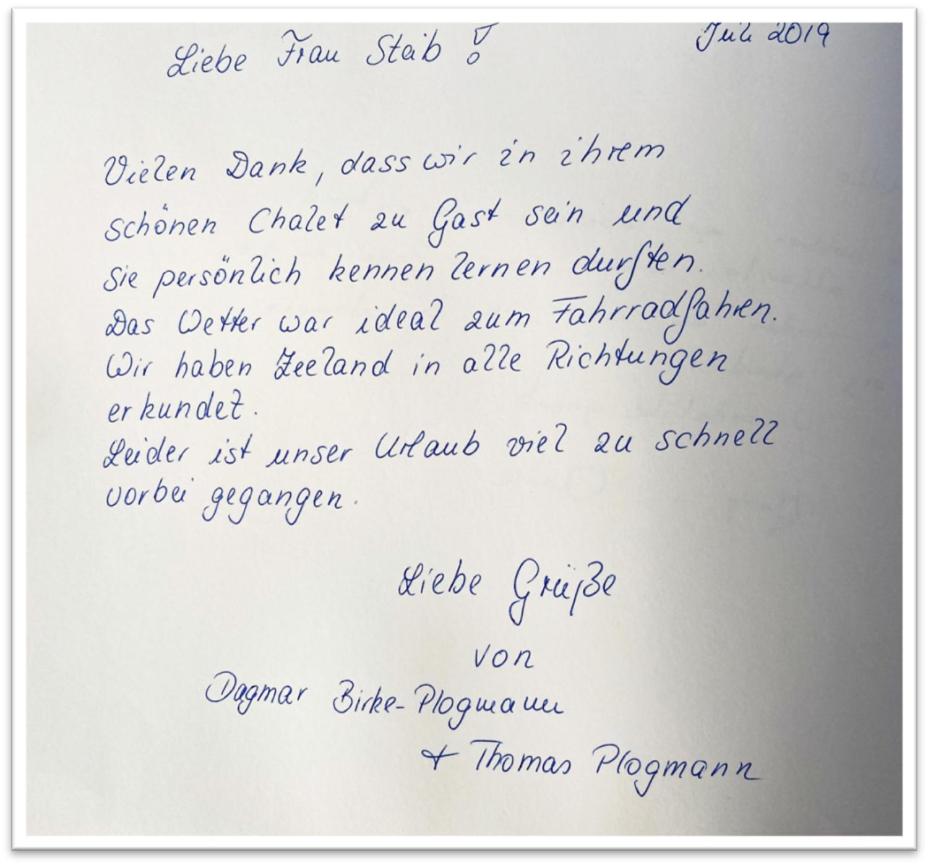 Juli 2019
Liebe Frau Staib !
Vielen Dank, dass wir in ihrem
schönen Chalet zu Gast sein und
Sie persönlich kennen lernen durften.
Das Wetter war ideal zum Fahrradfahren.
Wir haben Zeeland in alle Richtungen
erkundet.
Leider ist unser Urlaub viel zu schnell
vorbei gegangen.
Liebe Grüße
von
Dagmar Birke-Plogmann
+ Thomas Plogmann